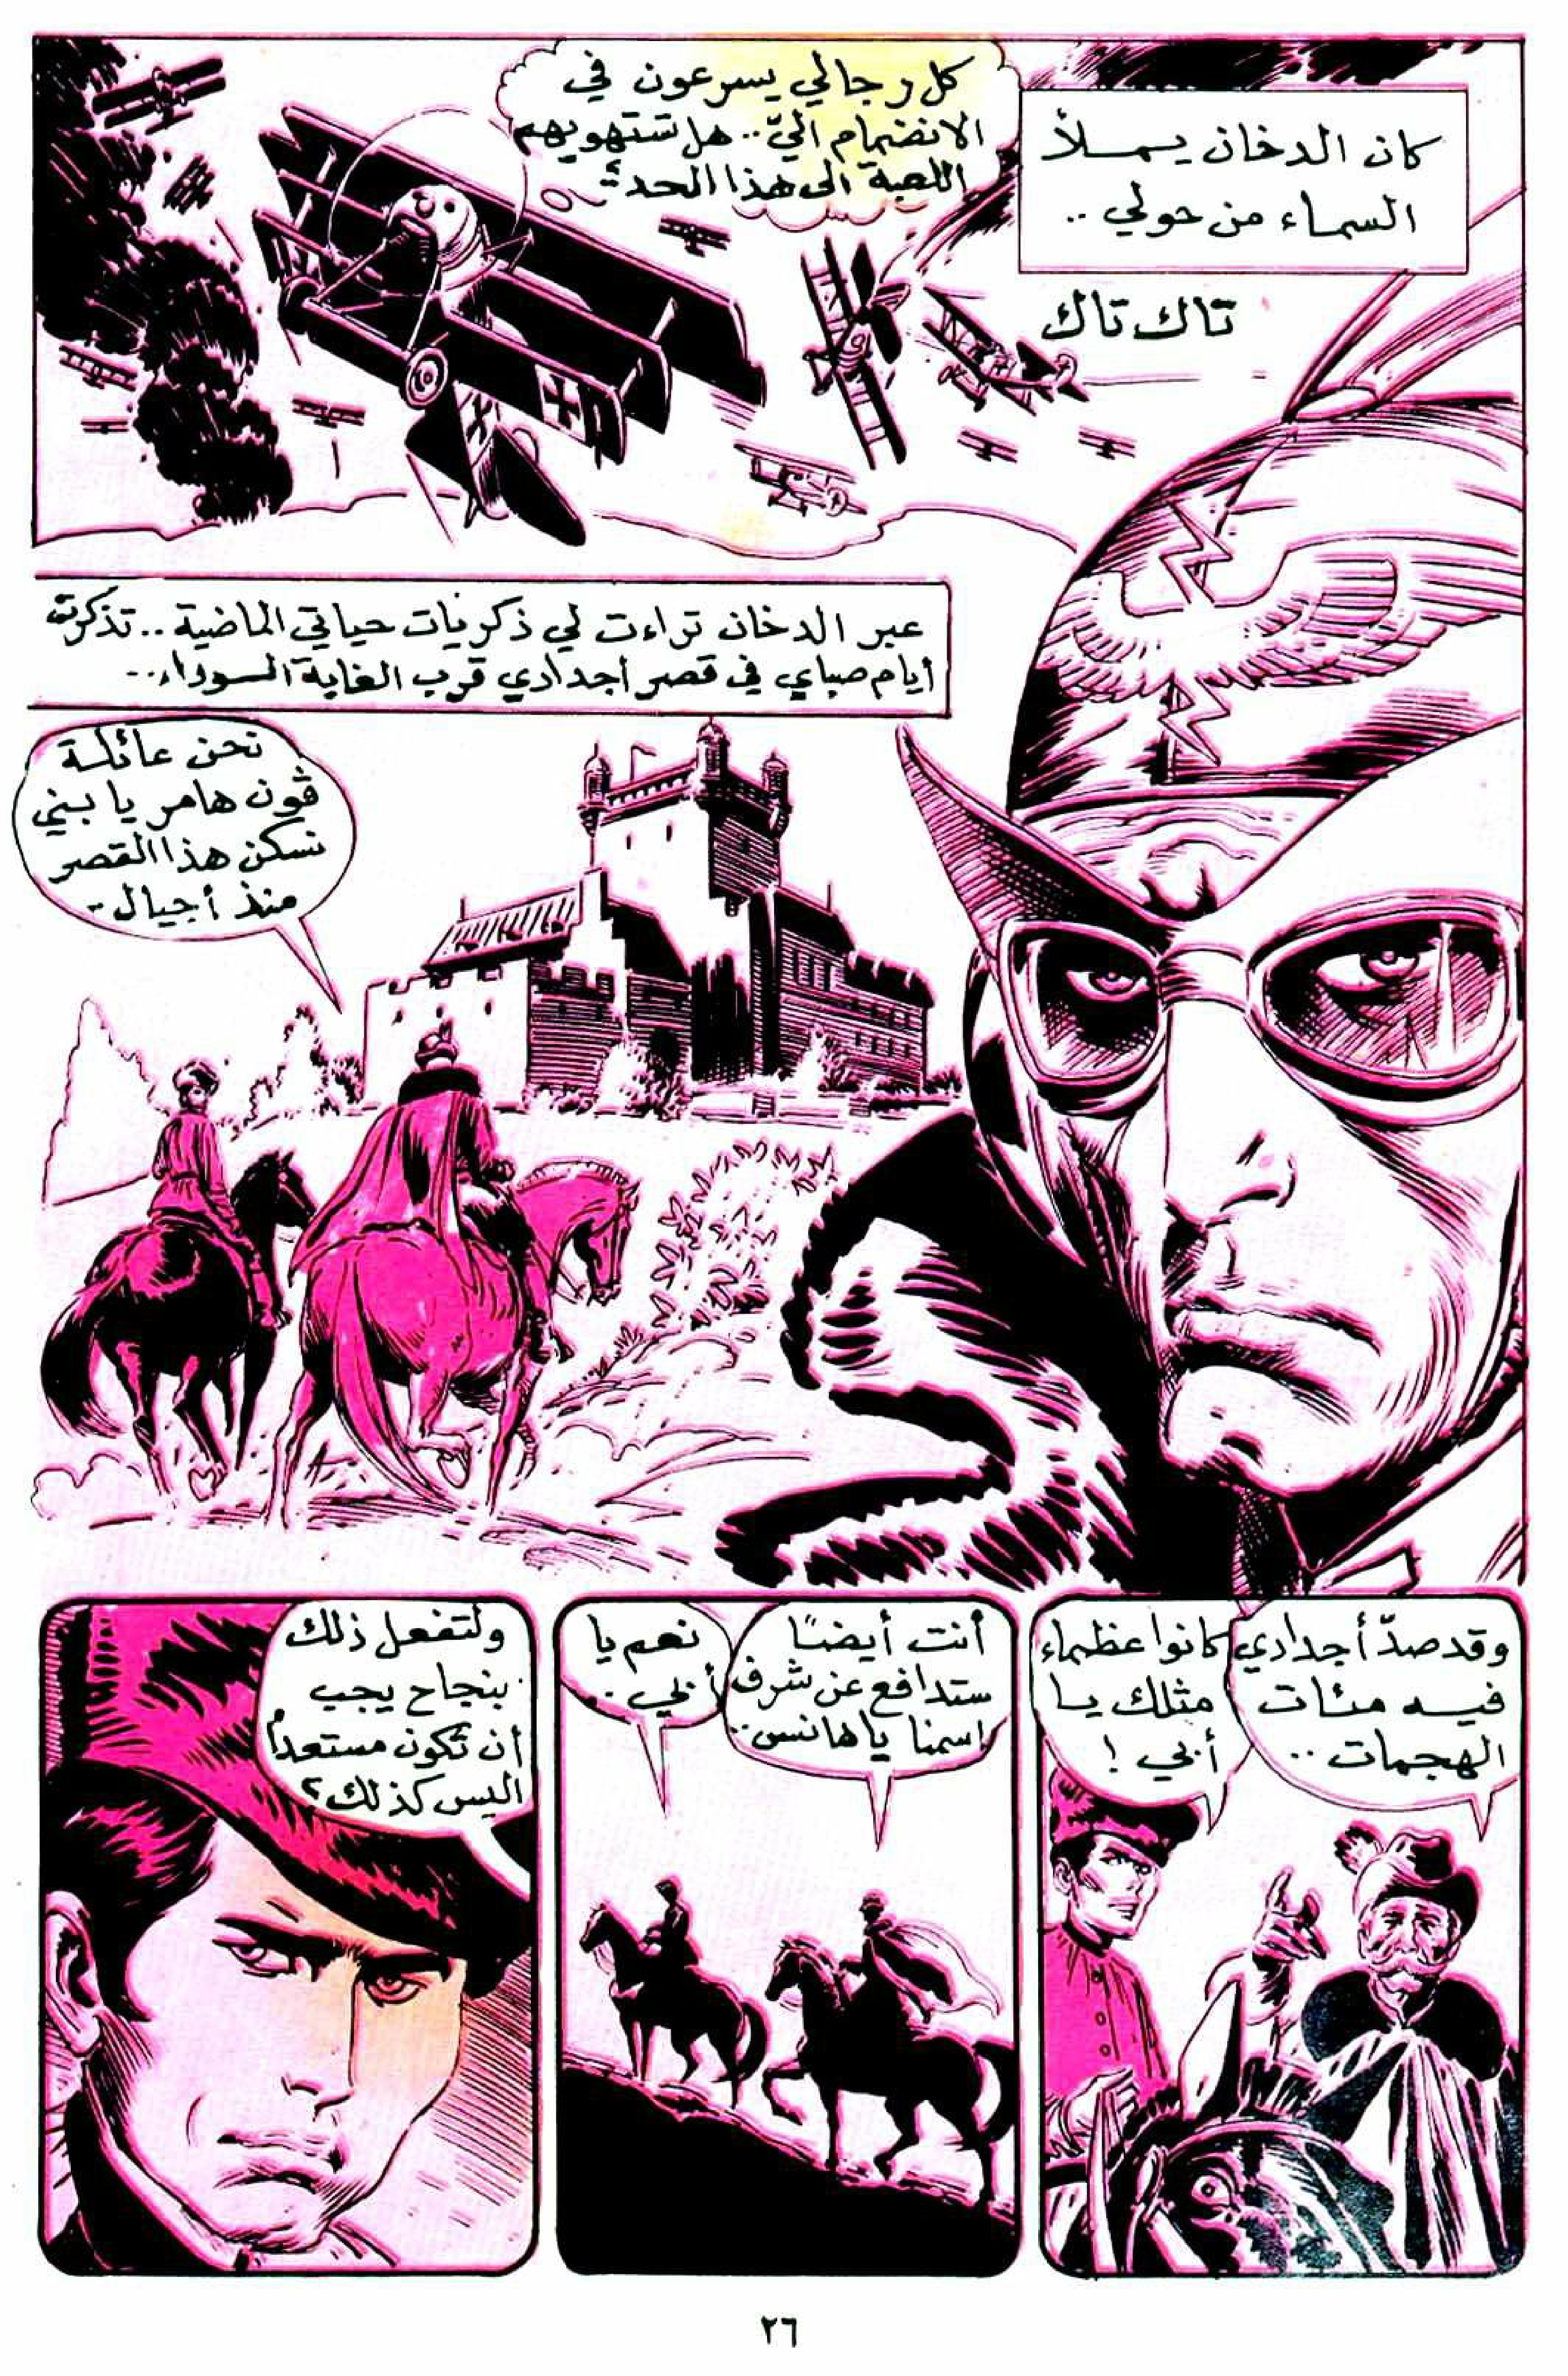 كان الدخان يملأ
السماء من حولي ..
كل رجالي يسرعون في
الانضمام اليّ.. هل تستهويهم
اللعبة الى هذا الحد؟
تاك تاك
عبر الدخان تراءت لي ذكريات حياتي الماضية .. تذكرت
أيام صباي في قصر أجدادي قرب الغابة السوداء..
نحن عائلة
ڤون هامر يا بني
نسكن هذا القصر
منذ أجيال -
وقد صدّ أجدادي
فيه مئات
الهجمات ..
كانوا عظماء
مثلك يا
أبي !
أنت أيضًا
ستدافع عن شرف
اسمنا يا هانس ..
نعم يا
أبي ..
ولتفعل ذلك
بنجاح يجب
أن تكون مستعداً
اليس كذلك؟
٢٦